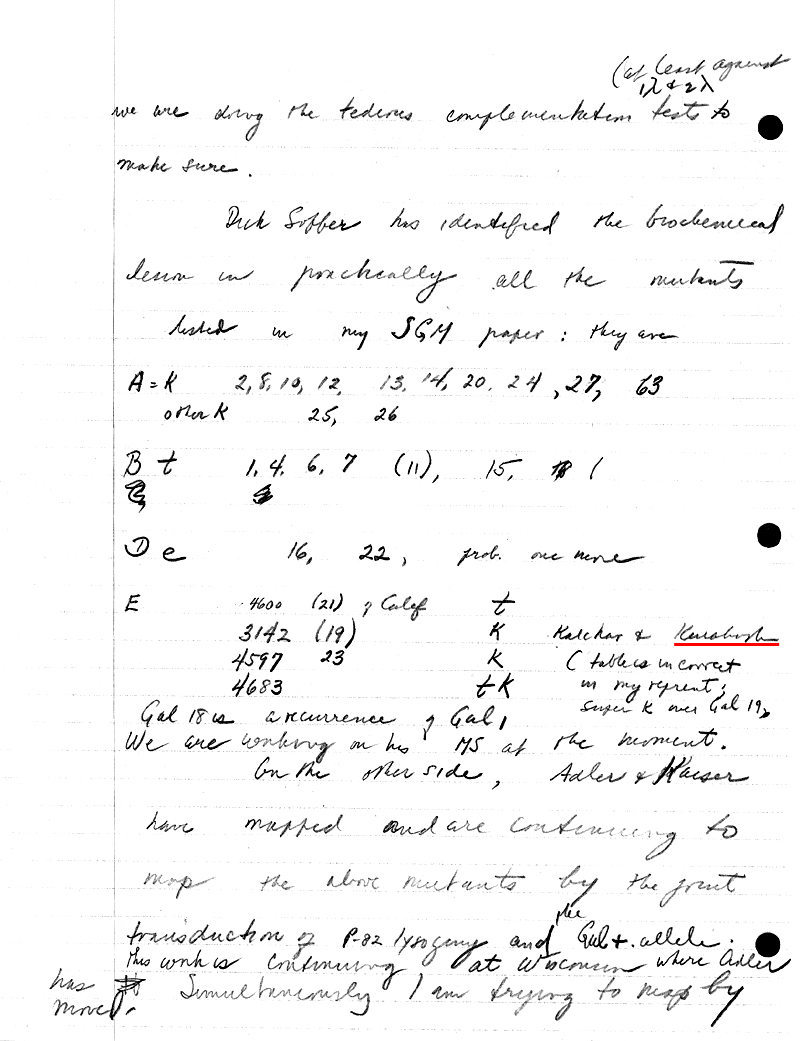 (at least against
1λ & 2λ
we are doing the tedious complementation tests to
make sure.
Dick Soffer has identified the biochemical
lesion in practically all the mutants
listed in my JGM paper: they are
A = K 2, 8, 10, 12, 13, 14, 20, 24, 27, 63
other K 25, 26
B t 1, 4, 6, 7 (11), 15, (
D e 16, 22, prob. one more
E 4600 (21) of Calef t
3142 (19) K Kalckar &
4597 23 K ( table is incorrect
4683 t K in my reprint;
super K over Gal 19)
Gal 18 is a recurrence of Gal 1
We are working on his MS at the moment.
On the other side, Adler & Kaiser
have mapped and are continuing to
map the above mutants by the joint
transduction of P-82 lysogeny and the Gal+ allele.
This work is continuing at Wisconsin where Adler
has moved. Simultaneously I am trying to map by